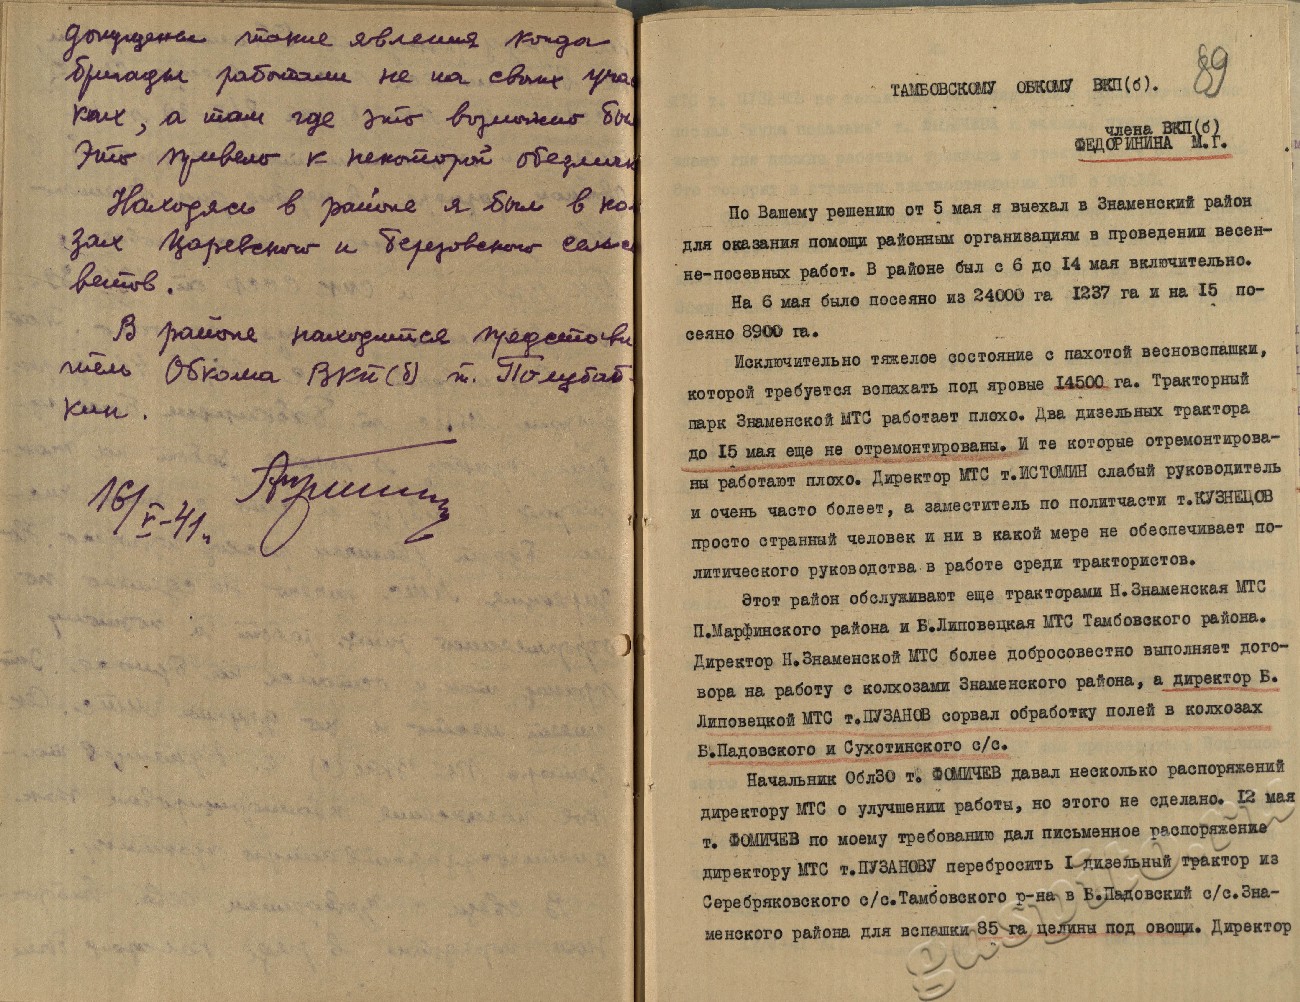 допущены такие явления когда
бригады работали не на своих учас
ках, а там где это возможно бы
Это привело к некоторой обезличк
Находясь в районе я был в кол
зах Царевского и Березовского сельсо
ветов.
В районе находится представи
тель Обкома ВКП(б) т. Полубат-
кин.
16/V-41г.
89
ТАМБОВСКОМУ ОБКОМУ ВКП(б).
члена ВКП(б)
ФЕДОРИНИНА М.Г.
По Вашему решению от 5 мая я выехал в Знаменский район
для оказания помощи районным организациям в проведении весен-
не-посевных работ. В районе был с 6 до 14 мая включительно.
На 6 мая было посеяно из 24000 га 1237 га и на 15 по-
сеяно 8900 га.
Исключительно тяжелое состояние с пахотой весновспашки,
которой требуется вспахать под яровые 14500 га. Тракторный
парк Знаменской МТС работает плохо. Два дизельных трактора
до 15 мая еще не отремонтированы. И те которые отремонтирова-
ны работают плохо. Директор МТС т.ИСТОМИН слабый руководитель
и очень часто болеет, а заместитель по политчасти т.КУЗНЕЦОВ
просто странный человек и ни в какой мере не обеспечивает по-
литического руководства в работе среди трактористов.
Этот район обслуживают еще тракторами Н.Знаменская МТС
П.Марфинского района и Б.Липовецкая МТС Тамбовского района.
Директор Н.Знаменской МТС более добросовестно выполняет дого-
вора на работу с колхозами Знаменского района, а директор Б.
Липовецкой МТС т.ПУЗАНОВ сорвал обработку полей в колхозах
Б.Падовского и Сухотинского с/с.
Начальник ОблЗО т. ФОМИЧЕВ давал несколько распоряжений
директору МТС о улучшении работы, но этого не сделано. 12 мая
т. ФОМИЧЕВ по моему требованию дал письменное распоряжение
директору МТС т.ПУЗАНОВУ перебросить 1 дизельный трактор из
Серебряковского с/с.Тамбовского р-на в Б.Падовский с/с.Зна-
менского района для вспашки 85 га целины под овощи. Директор
gaspito.ru